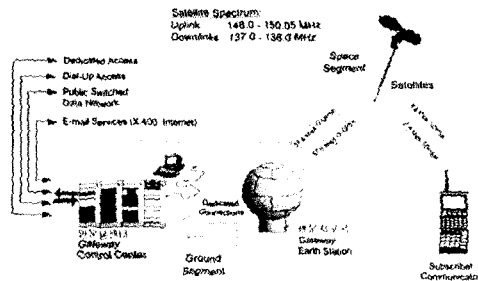 Satellite Spectrum:
Uplink 148.0 - 150.05 MHz
Downlinks 137.0 - 138.0 MHz
Space
Segment
Satellites
Dedicated Access
Dial-Up Access
Public Switched
Data Network
E-mail Services (X.400 Internet)
Dedicated
Connections
Gateway
Control Center
Ground
Segment
Gateway
Earth Station
Subscriber
Communicator